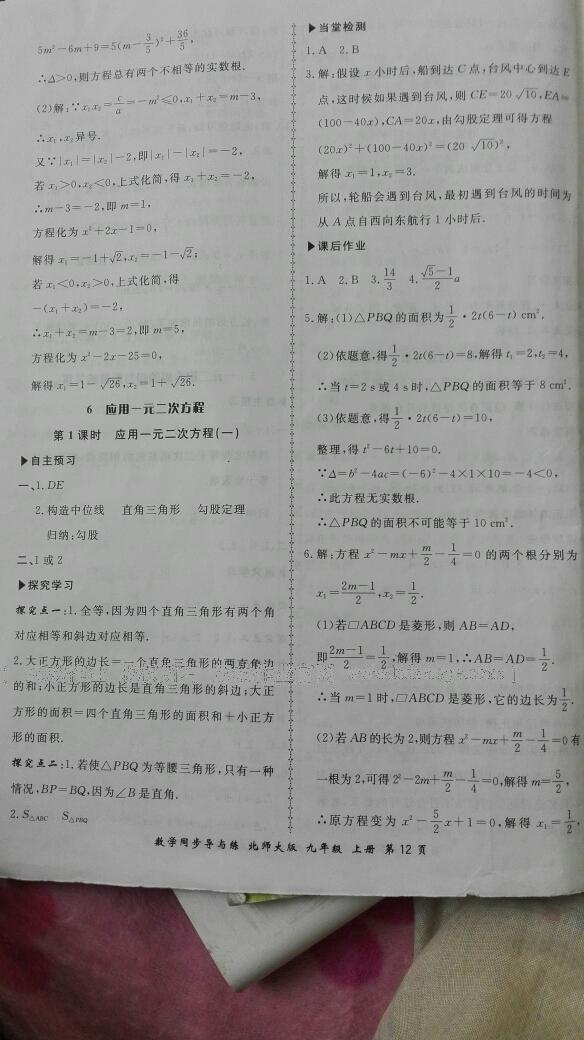 5m²-6m+9=5(m-3/5)²+36/5,
∴Δ>0,则方程总有两个不相等的实数根.
(2)解:∵x₁x₂=c/a=-m²≤0,x₁+x₂=m-3,
∴x₁,x₂异号.
又∵|x₁|=|x₂|-2,即|x₁|-|x₂|=-2,
若x₁>0,x₂<0,上式化简,得x₁+x₂=-2,
∴m-3=-2,即m=1,
方程化为x²+2x-1=0,
解得x₁=-1+√2,x₂=-1-√2;
若x₁<0,x₂>0,上式化简,得
-(x₁+x₂)=-2,
∴x₁+x₂=m-3=2,即m=5,
方程化为x²-2x-25=0,
解得x₁=1-√26,x₂=1+√26.
6 应用一元二次方程
第1课时 应用一元二次方程(一)
▶自主预习
一、1.DE
2.构造中位线 直角三角形 勾股定理
归纳:勾股
二、1或2
▶探究学习
探究点一:1.全等,因为四个直角三角形有两个角
对应相等和斜边对应相等.
2.大正方形的边长=一个直角三角形的两直角边
的和;小正方形的边长是直角三角形的斜边;大正
方形的面积=四个直角三角形的面积和+小正方
形的面积.
探究点二:1.若使△PBQ为等腰三角形,只有一种
情况,BP=BQ,因为∠B是直角.
2.S△ABC S△PBQ
▶当堂检测
1.A 2.B
3.解:假设x小时后,船到达C点,台风中心到达E
点,这时候如果遇到台风,则CE=20√10,EA=
(100-40x),CA=20x,由勾股定理可得方程
(20x)²+(100-40x)²=(20√10)²,
解得x₁=1,x₂=3.
所以,轮船会遇到台风,最初遇到台风的时间为
从A点自西向东航行1小时后.
▶课后作业
1.A 2.B 3.14/3 4.(√5-1)/2 a
5.解:(1)△PBQ的面积为1/2·2t(6-t) cm².
(2)依题意,得1/2·2t(6-t)=8,解得t₁=2,t₂=4,
∴当t=2 s或4 s时,△PBQ的面积等于8 cm².
(3)依题意,得1/2·2t(6-t)=10,
整理,得t²-6t+10=0.
∵Δ=b²-4ac=(-6)²-4×1×10=-4<0,
∴此方程无实数根.
∴△PBQ的面积不可能等于10 cm².
6.解:方程x²-mx+m/2-1/4=0的两个根分别为
x₁=(2m-1)/2,x₂=1/2.
(1)若▱ABCD是菱形,则AB=AD,
即(2m-1)/2=1/2,解得m=1,∴AB=AD=1/2.
∴当m=1时,▱ABCD是菱形,它的边长为1/2.
(2)若AB的长为2,则方程x²-mx+m/2-1/4=0有
一根为2,可得2²-2m+m/2-1/4=0,解得m=5/2,
∴原方程变为x²-5/2x+1=0,解得x₁=1/2,
数学同步导与练 北师大版 九年级 上册 第12页